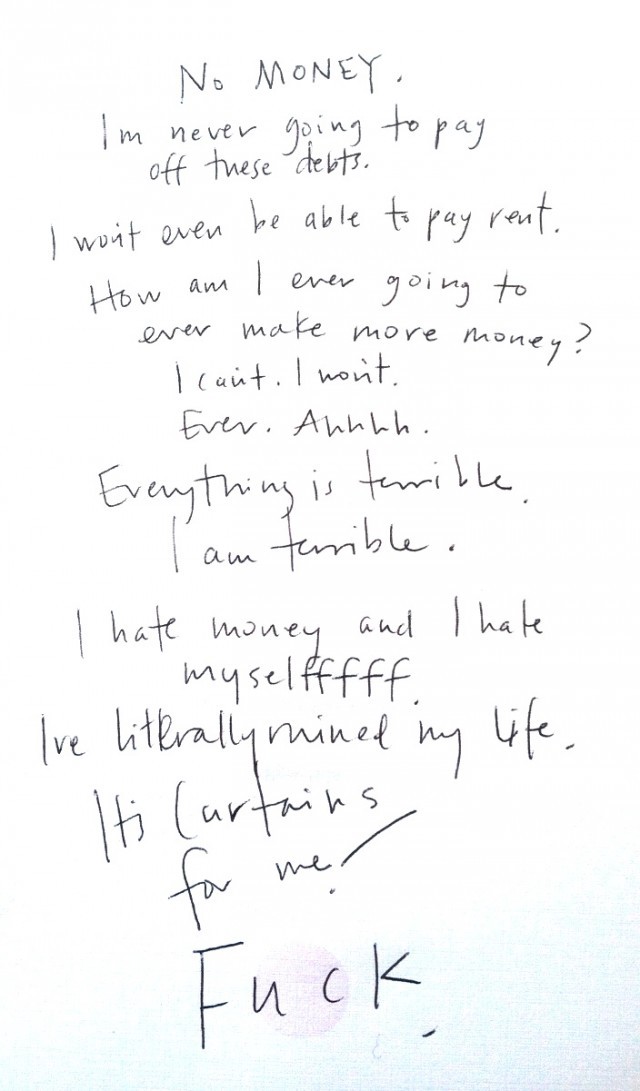 No MONEY.
Im never going to pay
off these debts.
I won't even be able to pay rent.
How am I ever going to
ever make more money?
I can't. I won't.
Ever. Ahhhh.
Everything is terrible.
I am terrible.
I hate money and I hate
myselfffff.
I've litterally ruined my life.
It's Curtains
for me!
Fuck.